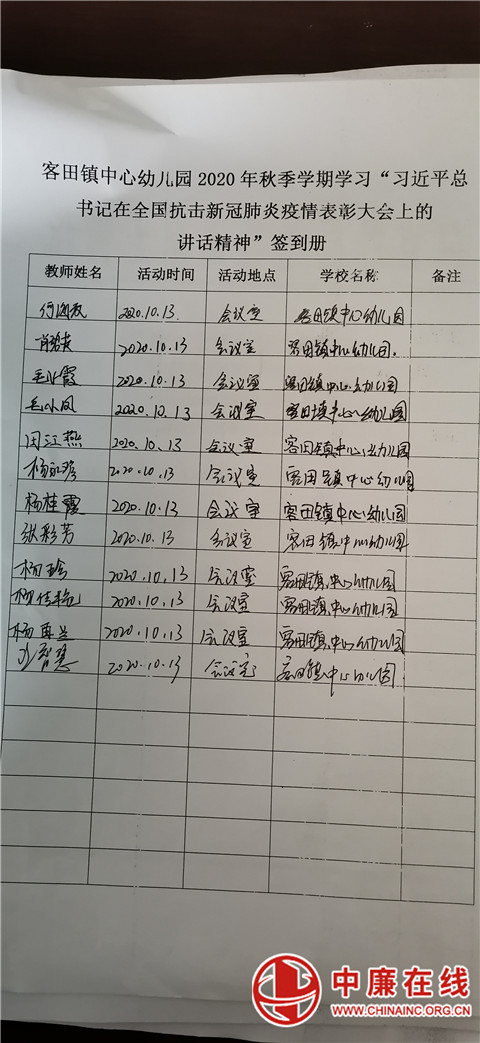 客田镇中心幼儿园 2020 年秋季学期学习“习近平总
书记在全国抗击新冠肺炎疫情表彰大会上的
讲话精神”签到册
教师姓名 活动时间 活动地点 学校名称 备注
2020.10.13. 会议室 客田镇中心幼儿园
2020.10.13 会议室 客田镇中心幼儿园.
2020.10.13 会议室 客田镇中心幼儿园
2020.10.13 会议室 客田镇中心幼儿园
田江燕 2020.10.13 会议室 客田镇中心幼儿园
2020.10.13 会议室 客田镇中心幼儿园
杨桂霞 2020.10.13 会议室 客田镇中心幼儿园
张彩芳 2020.10.13 会议室 客田镇中心幼儿园
杨玲 2020.10.13 会议室 客田镇中心幼儿园
2020.10.13 会议室 客田镇中心幼儿园
杨再兰 2020.10.13 会议室 客田镇中心幼儿园
2020.10.13 会议室 客田镇中心幼儿园
中廉在线
WWW.CHINAINC.ORG.CN